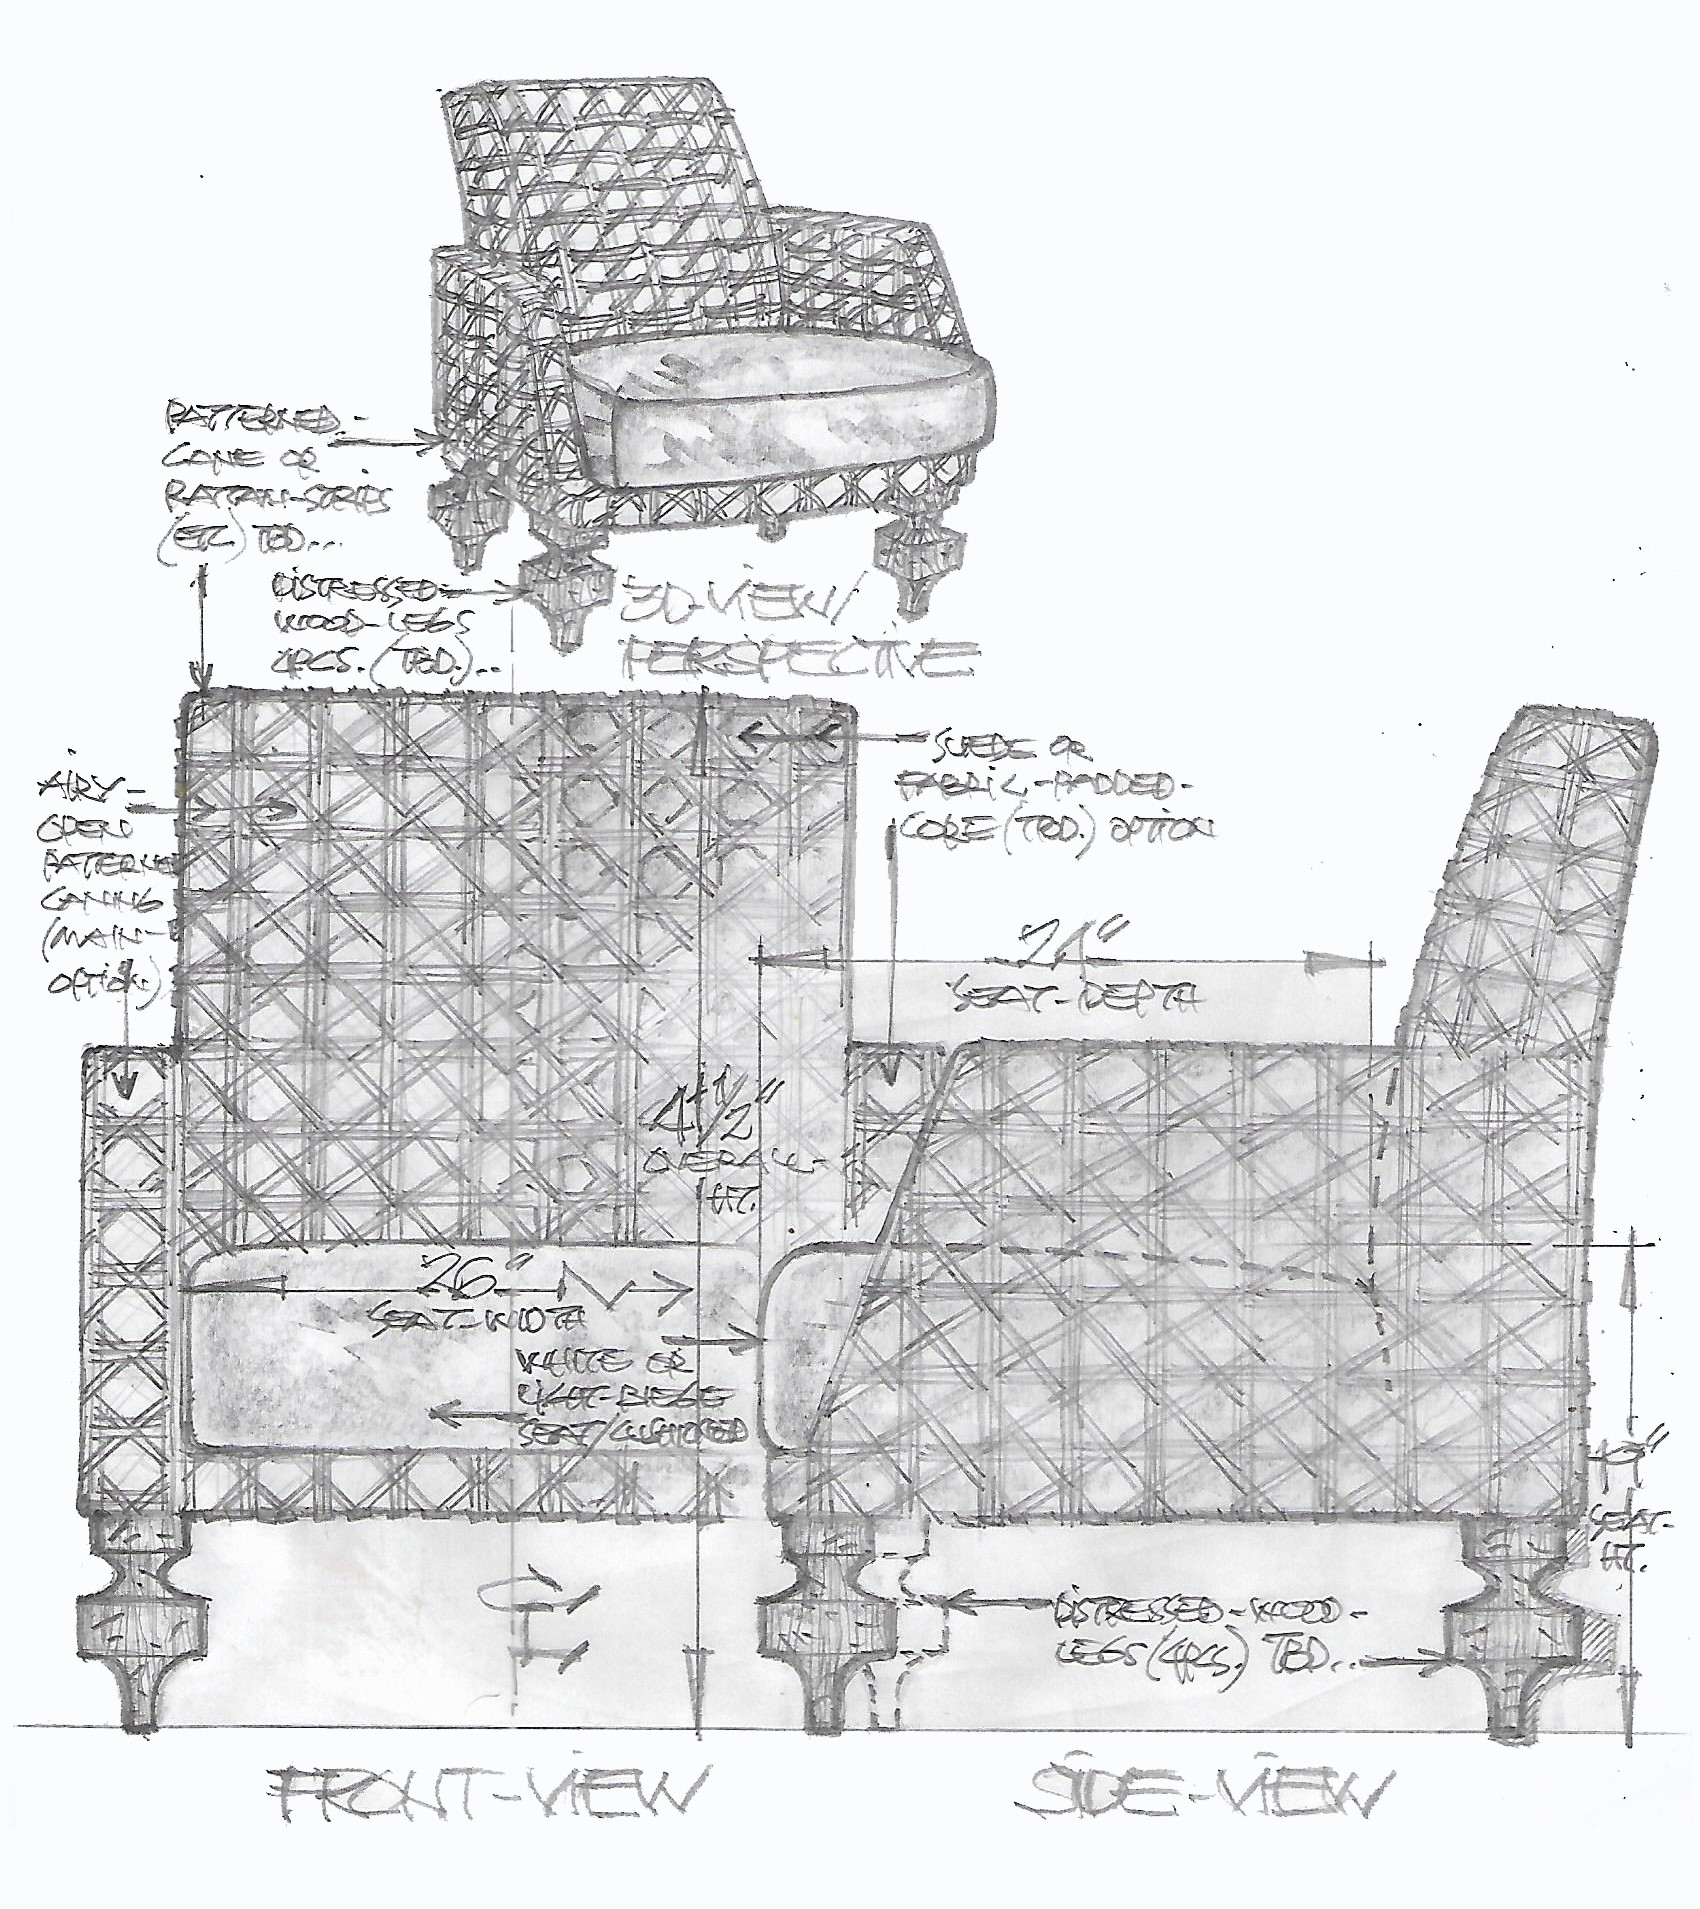 PATTERNED-
CANE OR
RATTAN-STRIPS
(ETC.) TBD...
DISTRESSED-
WOOD-LEGS
4PCS. (TBD.)..
3D-VIEW/
PERSPECTIVE
AIRY-
OPEN
PATTERNED
CANING
(MAIN-
OPTION.)
SUEDE OR
FABRIC-PADDED-
CORE (TBD.) OPTION
24"
SEAT-DEPTH
OVERALL-
HT.
26"
SEAT-WIDTH
WHITE OR
LIGHT-BIEGE
SEAT/CUSHIONED
SEAT-
HT.
DISTRESSED-WOOD-
LEGS (4PCS.) TBD...
FRONT-VIEW
SIDE-VIEW